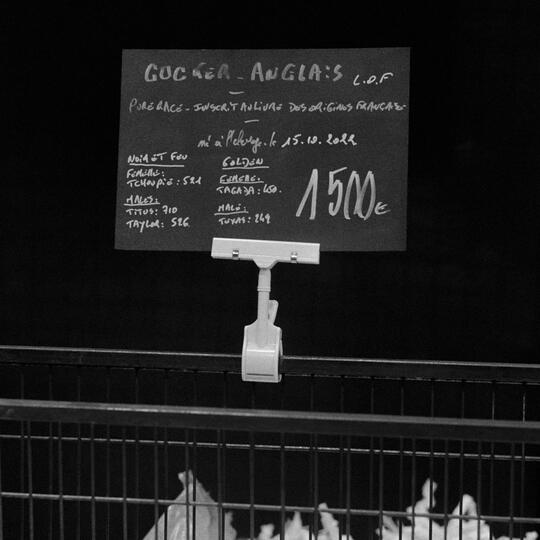 COCKER - ANGLAIS L.O.F
PURE RACE - INSCRIT AU LIVRE DES ORIGINES FRANCAISE
né à l'élevage. le 15.10.2022
NOIR ET FEU
FEMELLE:
TCHOUPIE: 521
MALES:
TITUS: 710
TAYLOR: 526
GOLDEN
FEMELLE:
TAGADA: 650.
MALE:
TEXAS: 249
1500€